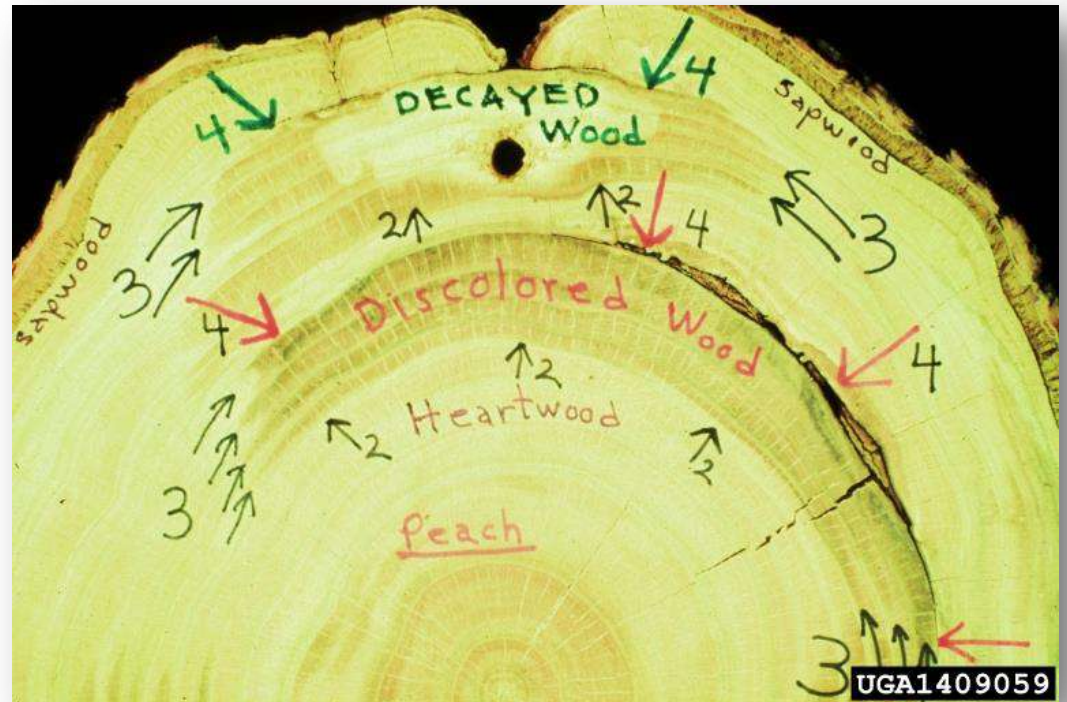 DECAYED
Wood
4
4
sapwood
sapwood
3
2
2
4
3
4
Discolored Wood
4
2
Heartwood
2
2
3
Peach
3
UGA1409059